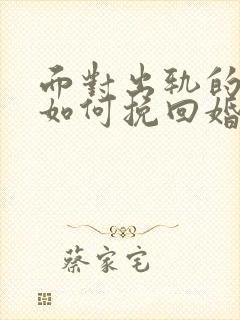 面對出軌的
如何挽回婚
蔡家宅